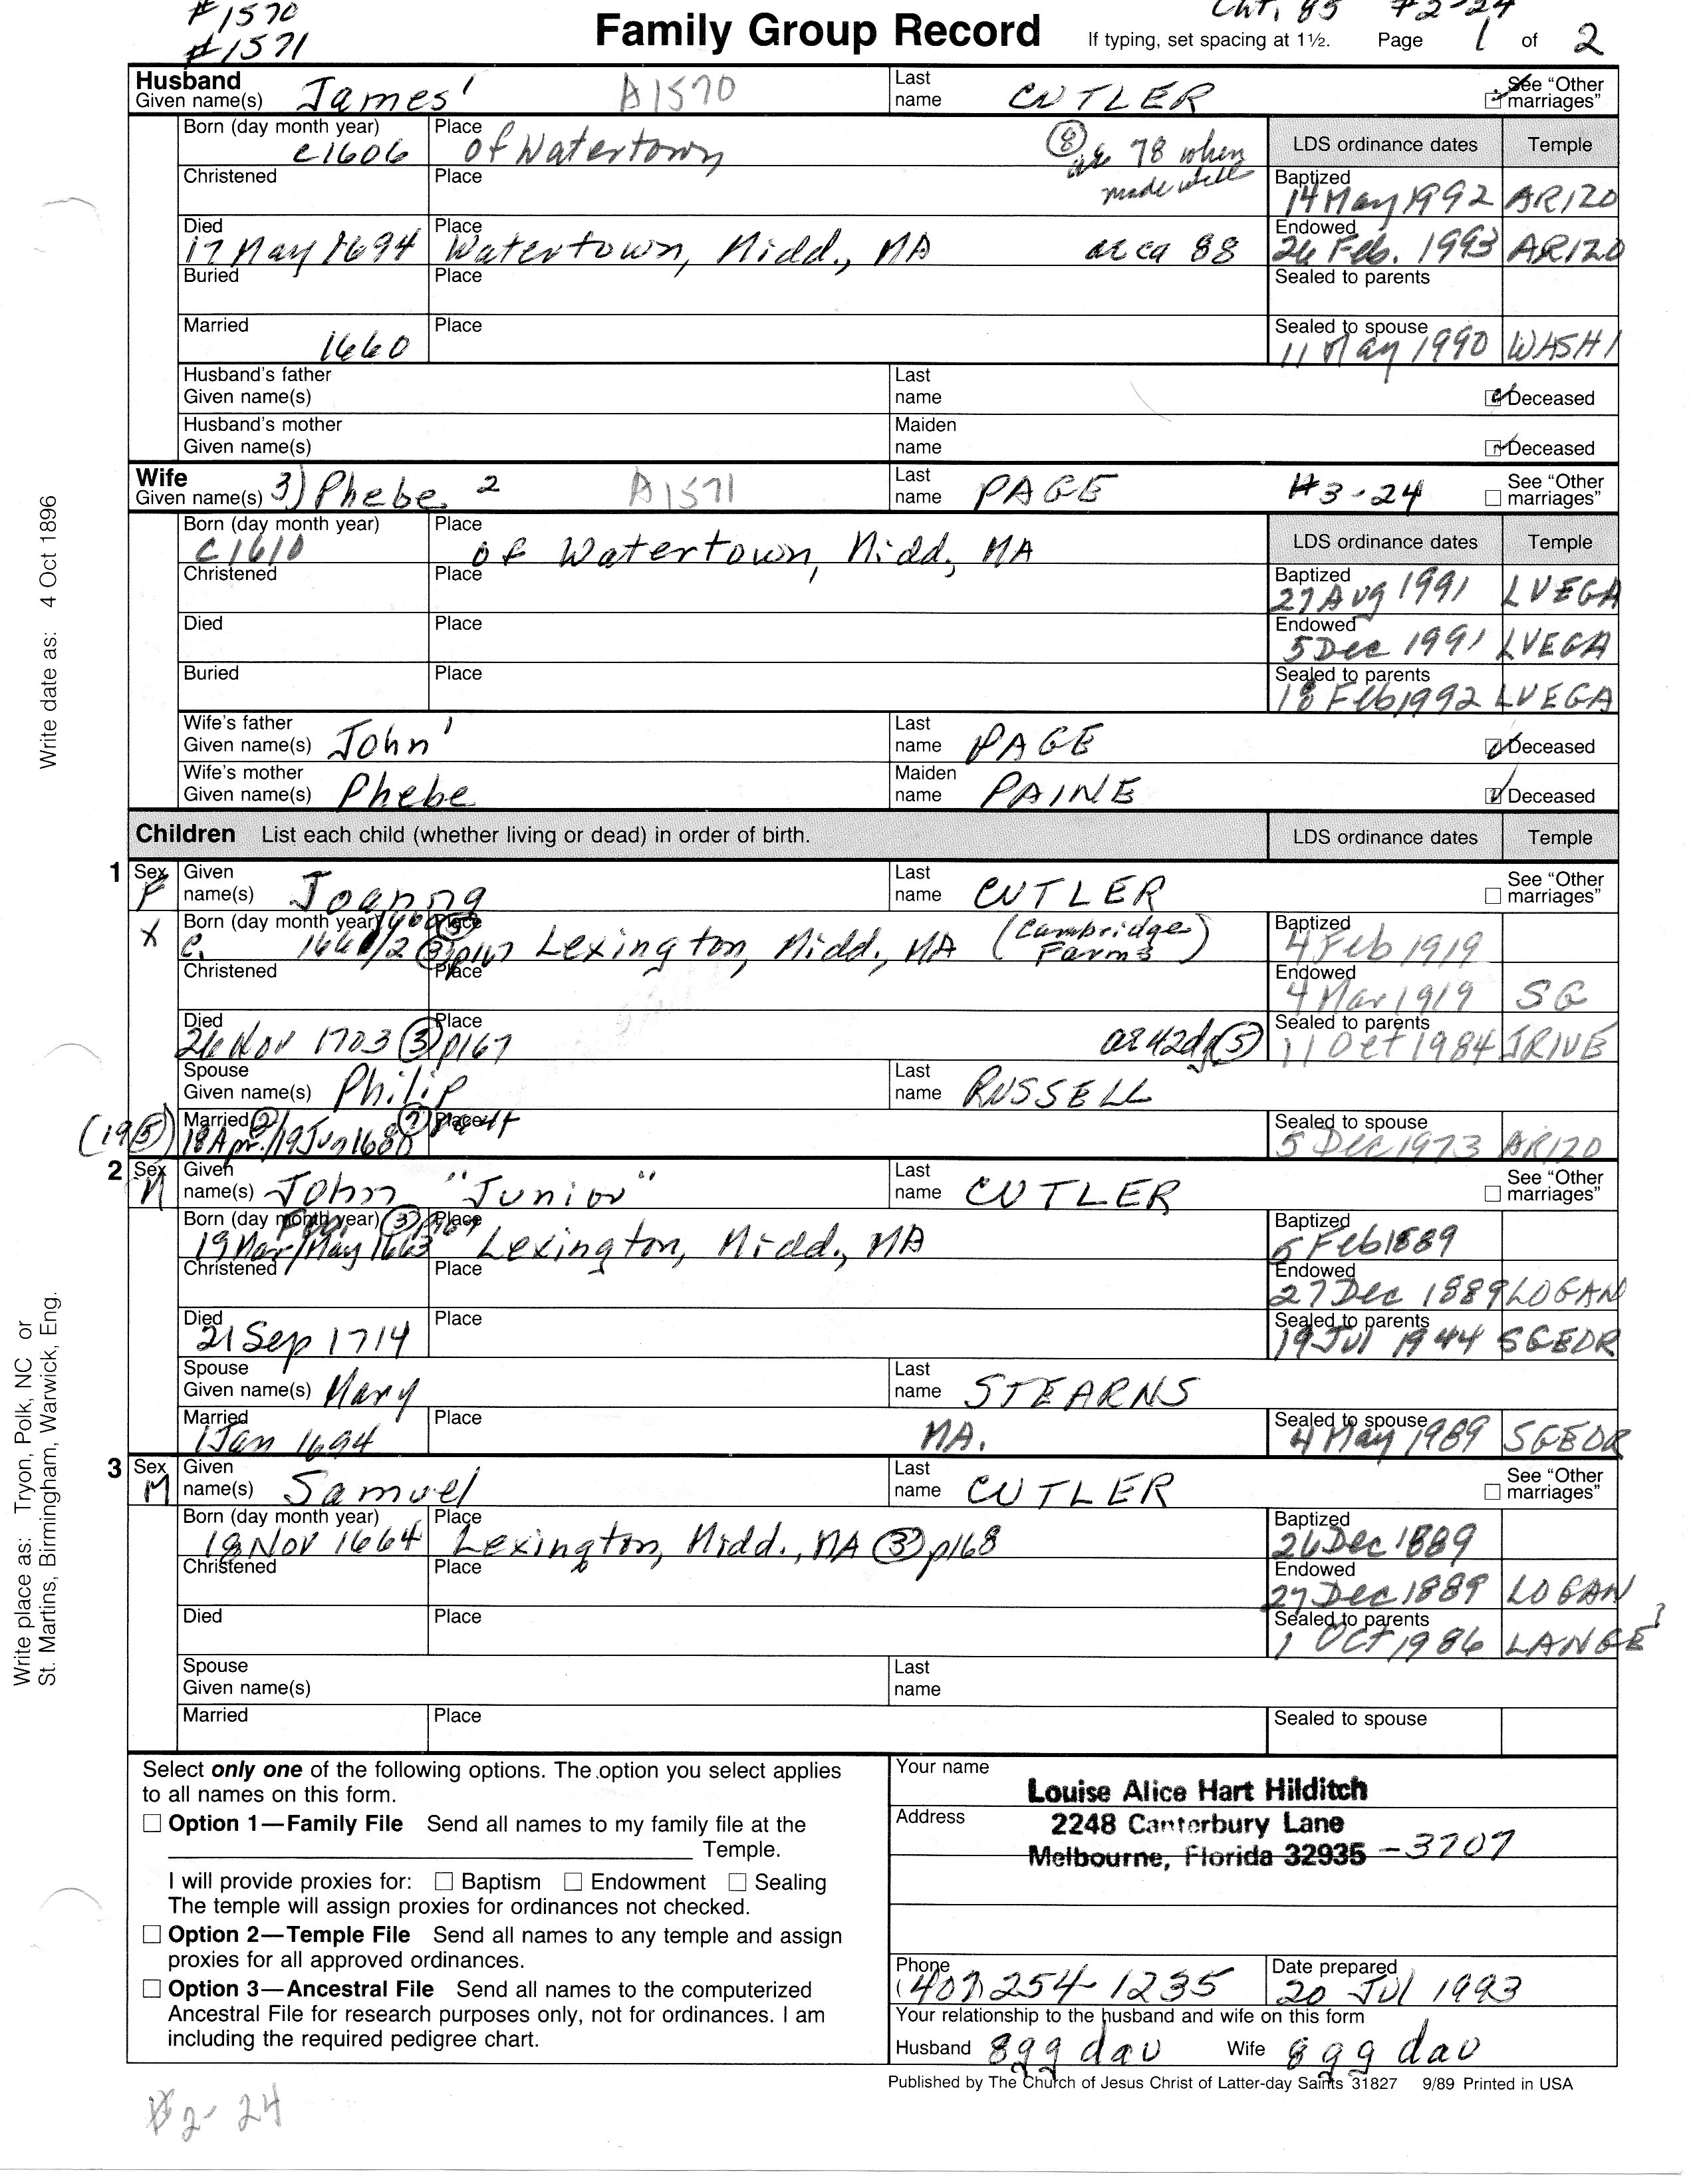 #1570
#1571
Family Group Record
Cht. 85 #2-24
If typing, set spacing at 1½. Page 1 of 2
Husband
Given name(s) James¹ A1570
Last name CUTLER
See "Other marriages"
Born (day month year) c1606
Place of Watertown
⑧ ae 78 when made will
LDS ordinance dates Temple
Christened
Place
Baptized 14 May 1992 ARIZO
Died 17 May 1694
Place Watertown, Midd., MA ae ca 88
Endowed 26 Feb. 1993 ARIZO
Buried
Place
Sealed to parents
Married 1660
Place
Sealed to spouse 11 May 1990 WASHI
Husband's father
Given name(s)
Last name
Deceased
Husband's mother
Given name(s)
Maiden name
Deceased
Wife
Given name(s) 3) Phebe 2 A1571
Last name PAGE #3-24
See "Other marriages"
Born (day month year) c1610
Place of Watertown, Midd., MA
LDS ordinance dates Temple
Christened
Place
Baptized 27 Aug 1991 LVEGA
Died
Place
Endowed 5 Dec 1991 LVEGA
Buried
Place
Sealed to parents 18 Feb 1992 LVEGA
Wife's father
Given name(s) John¹
Last name PAGE
Deceased
Wife's mother
Given name(s) Phebe
Maiden name PAINE
Deceased
Children List each child (whether living or dead) in order of birth.
LDS ordinance dates Temple
1 Sex F
X
Given name(s) Joanna
Last name CUTLER
See "Other marriages"
Born (day month year) c. 1661/2 ③ p167
Place Lexington, Midd., MA (Cambridge Farms)
Baptized 4 Feb 1919
Christened
Place
Endowed 4 Mar 1919 SG
Died 26 Nov 1703 ③ p167
Place ae 42 ⑤
Sealed to parents 11 Oct 1984 JRIVE
Spouse
Given name(s) Philip
Last name RUSSELL
(19 ⑤) Married 18 Apr./19 Jun 1680
Place
Sealed to spouse 5 Dec 1973 ARIZO
2 Sex M
Given name(s) John "Junior"
Last name CUTLER
See "Other marriages"
Born (day month year) 19 Mar/May 1663 ③
Place Lexington, Midd., MA
Baptized 5 Feb 1889
Christened
Place
Endowed 27 Dec 1889 LOGAN
Died 21 Sep 1714
Place
Sealed to parents 19 Jul 1944 SGEDR
Spouse
Given name(s) Mary
Last name STEARNS
Married 1 Jan 1694
Place MA.
Sealed to spouse 4 May 1989 SGEOR
3 Sex M
Given name(s) Samuel
Last name CUTLER
See "Other marriages"
Born (day month year) 18 Nov 1664
Place Lexington, Midd., MA ③ p168
Baptized 26 Dec 1889
Christened
Place
Endowed 27 Dec 1889 LOGAN
Died
Place
Sealed to parents 1 Oct 1986 LANGE?
Spouse
Given name(s)
Last name
Married
Place
Sealed to spouse
Select only one of the following options. The option you select applies
to all names on this form.
Option 1—Family File Send all names to my family file at the
Temple.
I will provide proxies for: Baptism Endowment Sealing
The temple will assign proxies for ordinances not checked.
Option 2—Temple File Send all names to any temple and assign
proxies for all approved ordinances.
Option 3—Ancestral File Send all names to the computerized
Ancestral File for research purposes only, not for ordinances. I am
including the required pedigree chart.
Your name Louise Alice Hart Hilditch
Address 2248 Canterbury Lane
Melbourne, Florida 32935 -3707
Phone (407) 254-1235
Date prepared 20 Jul 1993
Your relationship to the husband and wife on this form
Husband 8gg dau Wife 8gg dau
Published by The Church of Jesus Christ of Latter-day Saints 31827 9/89 Printed in USA
#2-24
Write date as: 4 Oct 1896
Write place as: Tryon, Polk, NC or
St. Martins, Birmingham, Warwick, Eng.